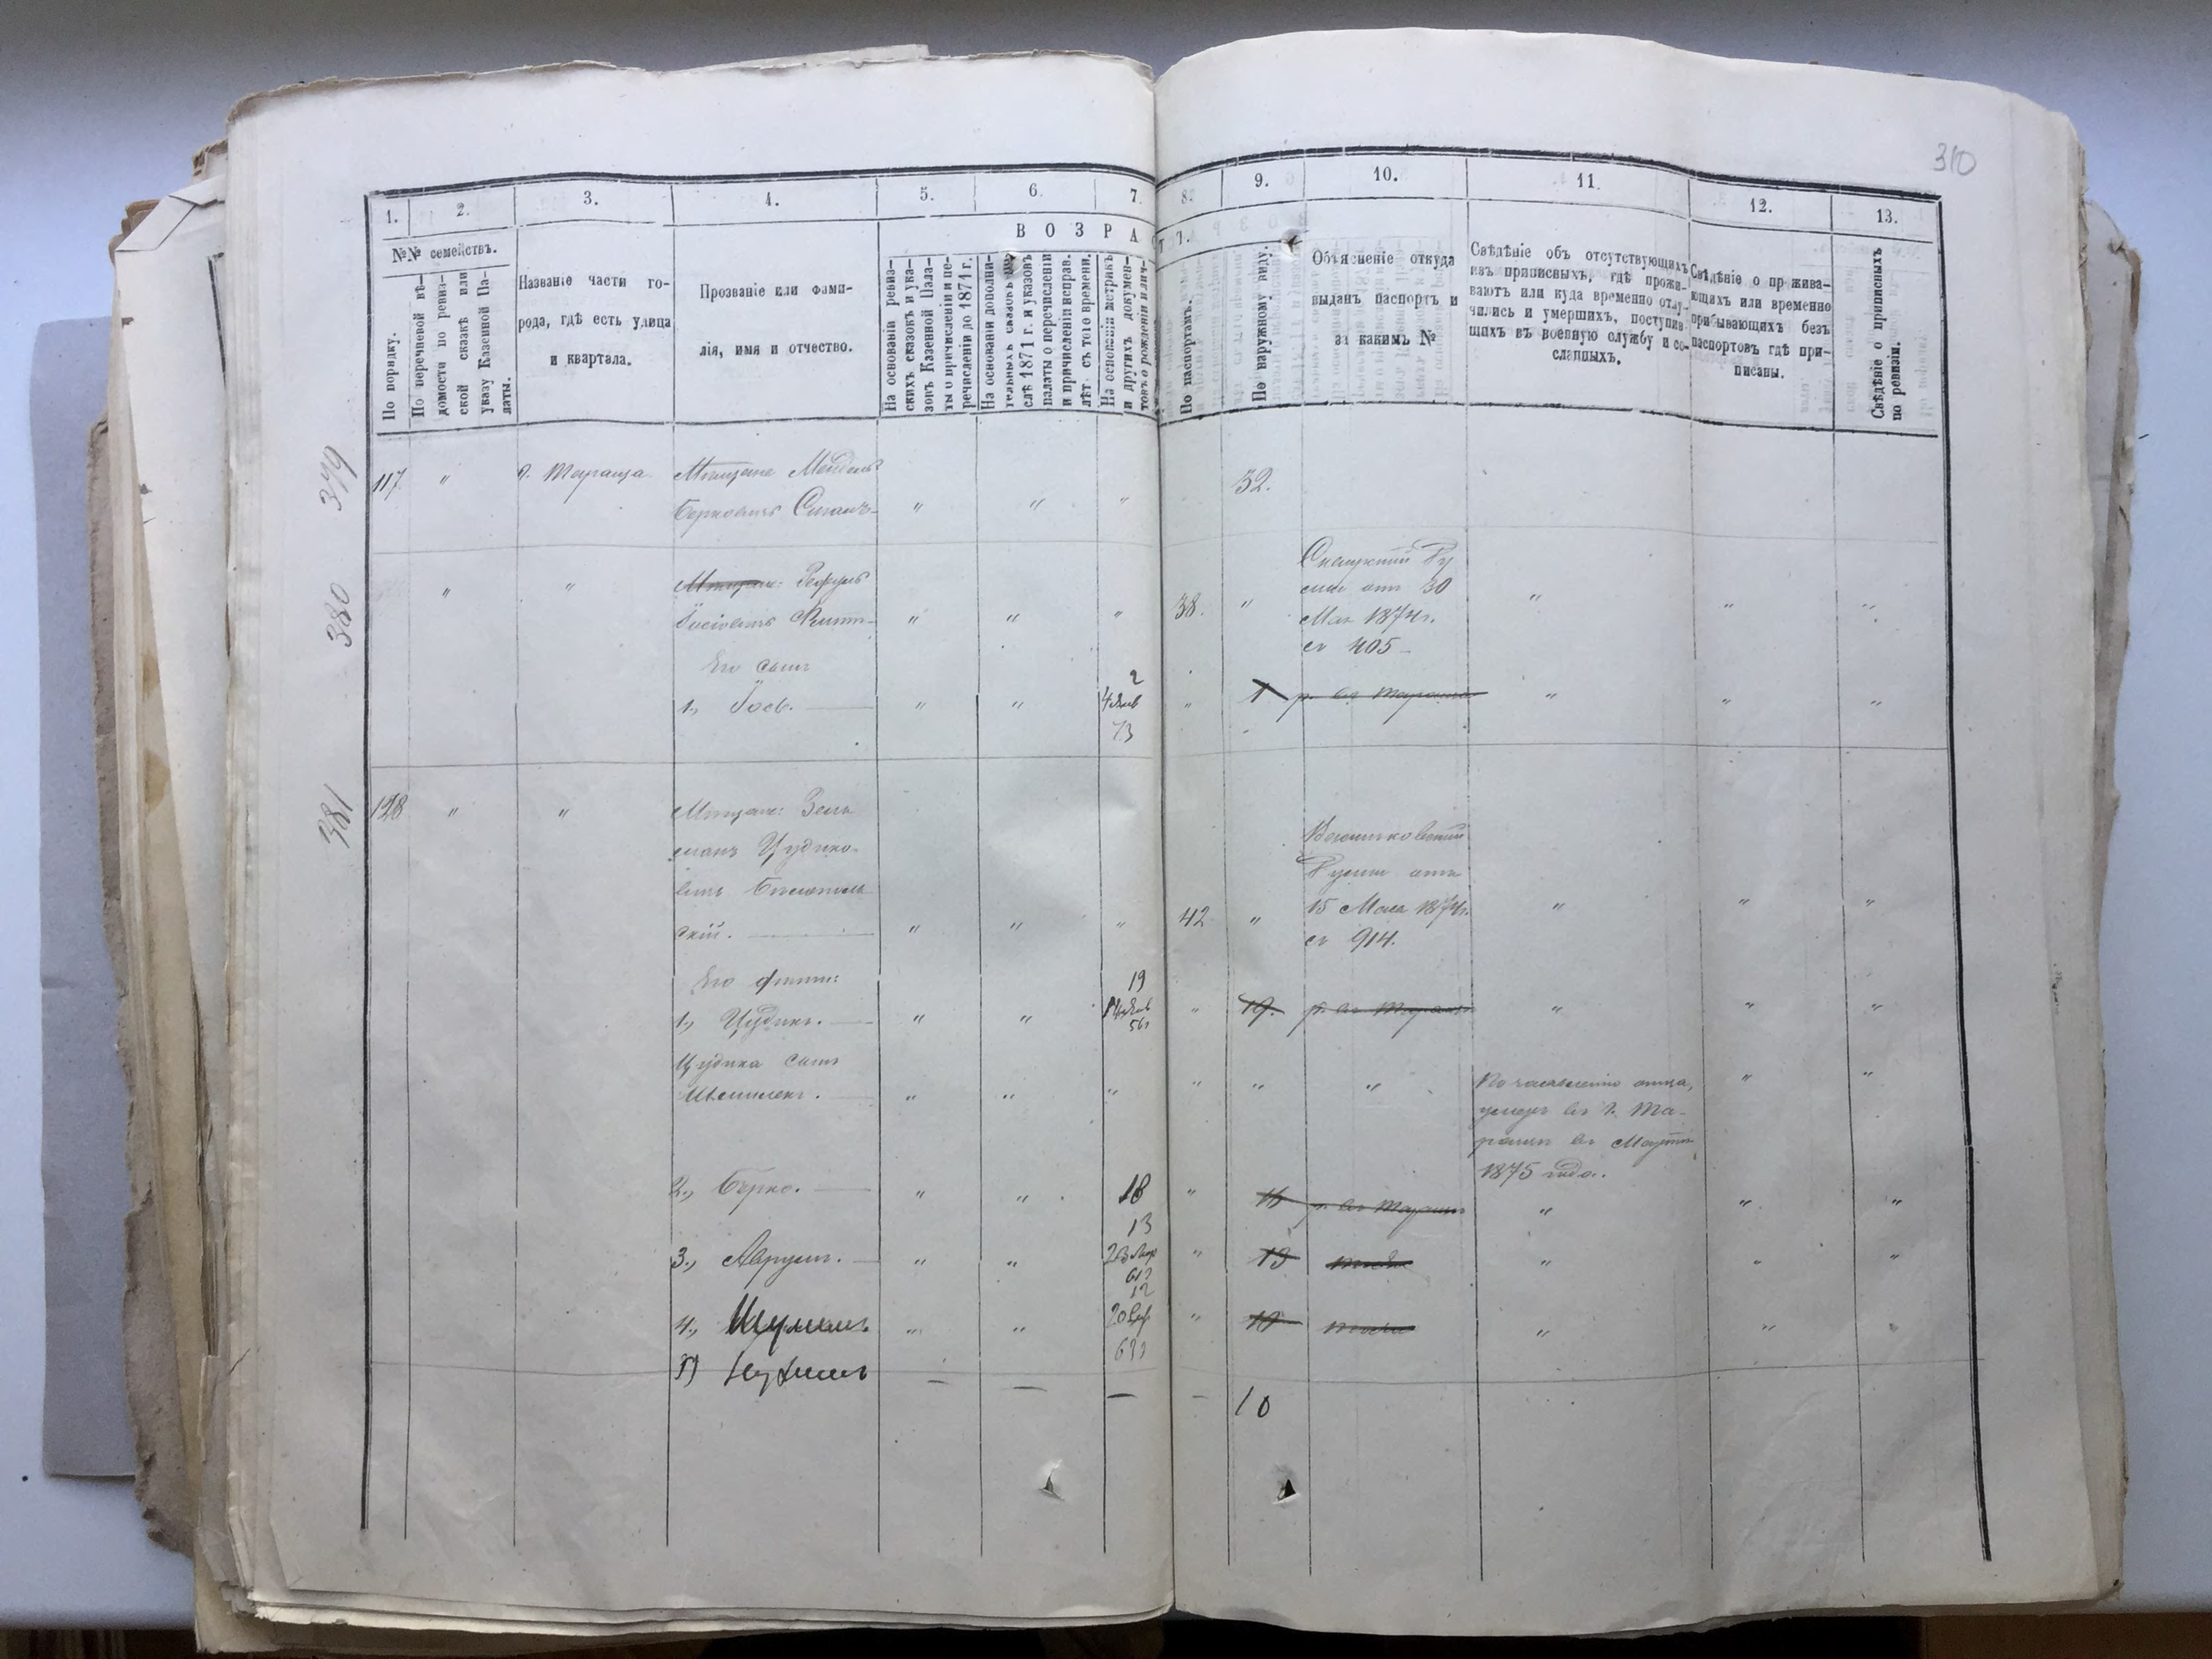 310
1.
2.
3.
4.
5.
6.
7.
8.
9.
10.
11.
12.
13.
№№ семействъ.
В О З Р А С Т Ъ.
По порядку.
По перечневой вѣ-
домости по ревиз-
ской сказкѣ или
указу Казенной Па-
латы.
Названіе части го-
рода, гдѣ есть улица
и квартала.
Прозваніе или фами-
лія, имя и отчество.
На основаніи ревиз-
скихъ сказокъ и ука-
зовъ Казенной Пала-
ты о причисленіи и пе-
речисленіи до 1871 г.
На основаніи дополни-
тельныхъ сказокъ
слѣ 1871 г. и указовъ
палаты о перечисленіи
и причисленіи исправ.
лѣт. съ того времени.
На основаніи метрикъ
и другихъ докумен-
товъ о рожденіи
По паспортамъ.
По наружному виду.
Объясненіе откуда
выданъ паспортъ и
за какимъ №
Свѣдѣніе объ отсутствующихъ
изъ приписныхъ, гдѣ прожи-
ваютъ или куда временно отлу-
чились и умершихъ, поступив
шихъ въ военную службу и со-
сланныхъ.
Свѣдѣніе о прожива-
ющихъ или временно
прибывающихъ безъ
паспортовъ гдѣ при-
писаны.
Свѣдѣніе о приписныхъ
по ревизіи.
379
117 " г. Тараща Мѣщане Мендель 32.
Берковичъ " " "
380
" " Мѣщан:
" " " 38. " отъ 30 " " "
Мая 1874 г.
за 405
Его сынъ
2
1., Іось. " " 4 Янв " 1 р. въ Таращѣ " " "
73
381
128 " " Мѣщан: Зель
манъ Цудико-
вичъ
скій. " " " 42 " 15 Мая 1874 г. " " "
за 914.
Его дѣти:
19
1., Цудикъ. " " " 19. р. въ Таращѣ " " "
56
Цудика сынъ
" " " " " " По заявленію отца, " "
умеръ въ г. Та-
ращѣ въ Мартѣ
1875 года.
2., Берко. " " 16 " 16 р. въ Таращѣ " " "
13
3., Аврумъ. " " " 13 тоже " " "
12
4., Шулимъ " " " 12 тоже " "
5)
10